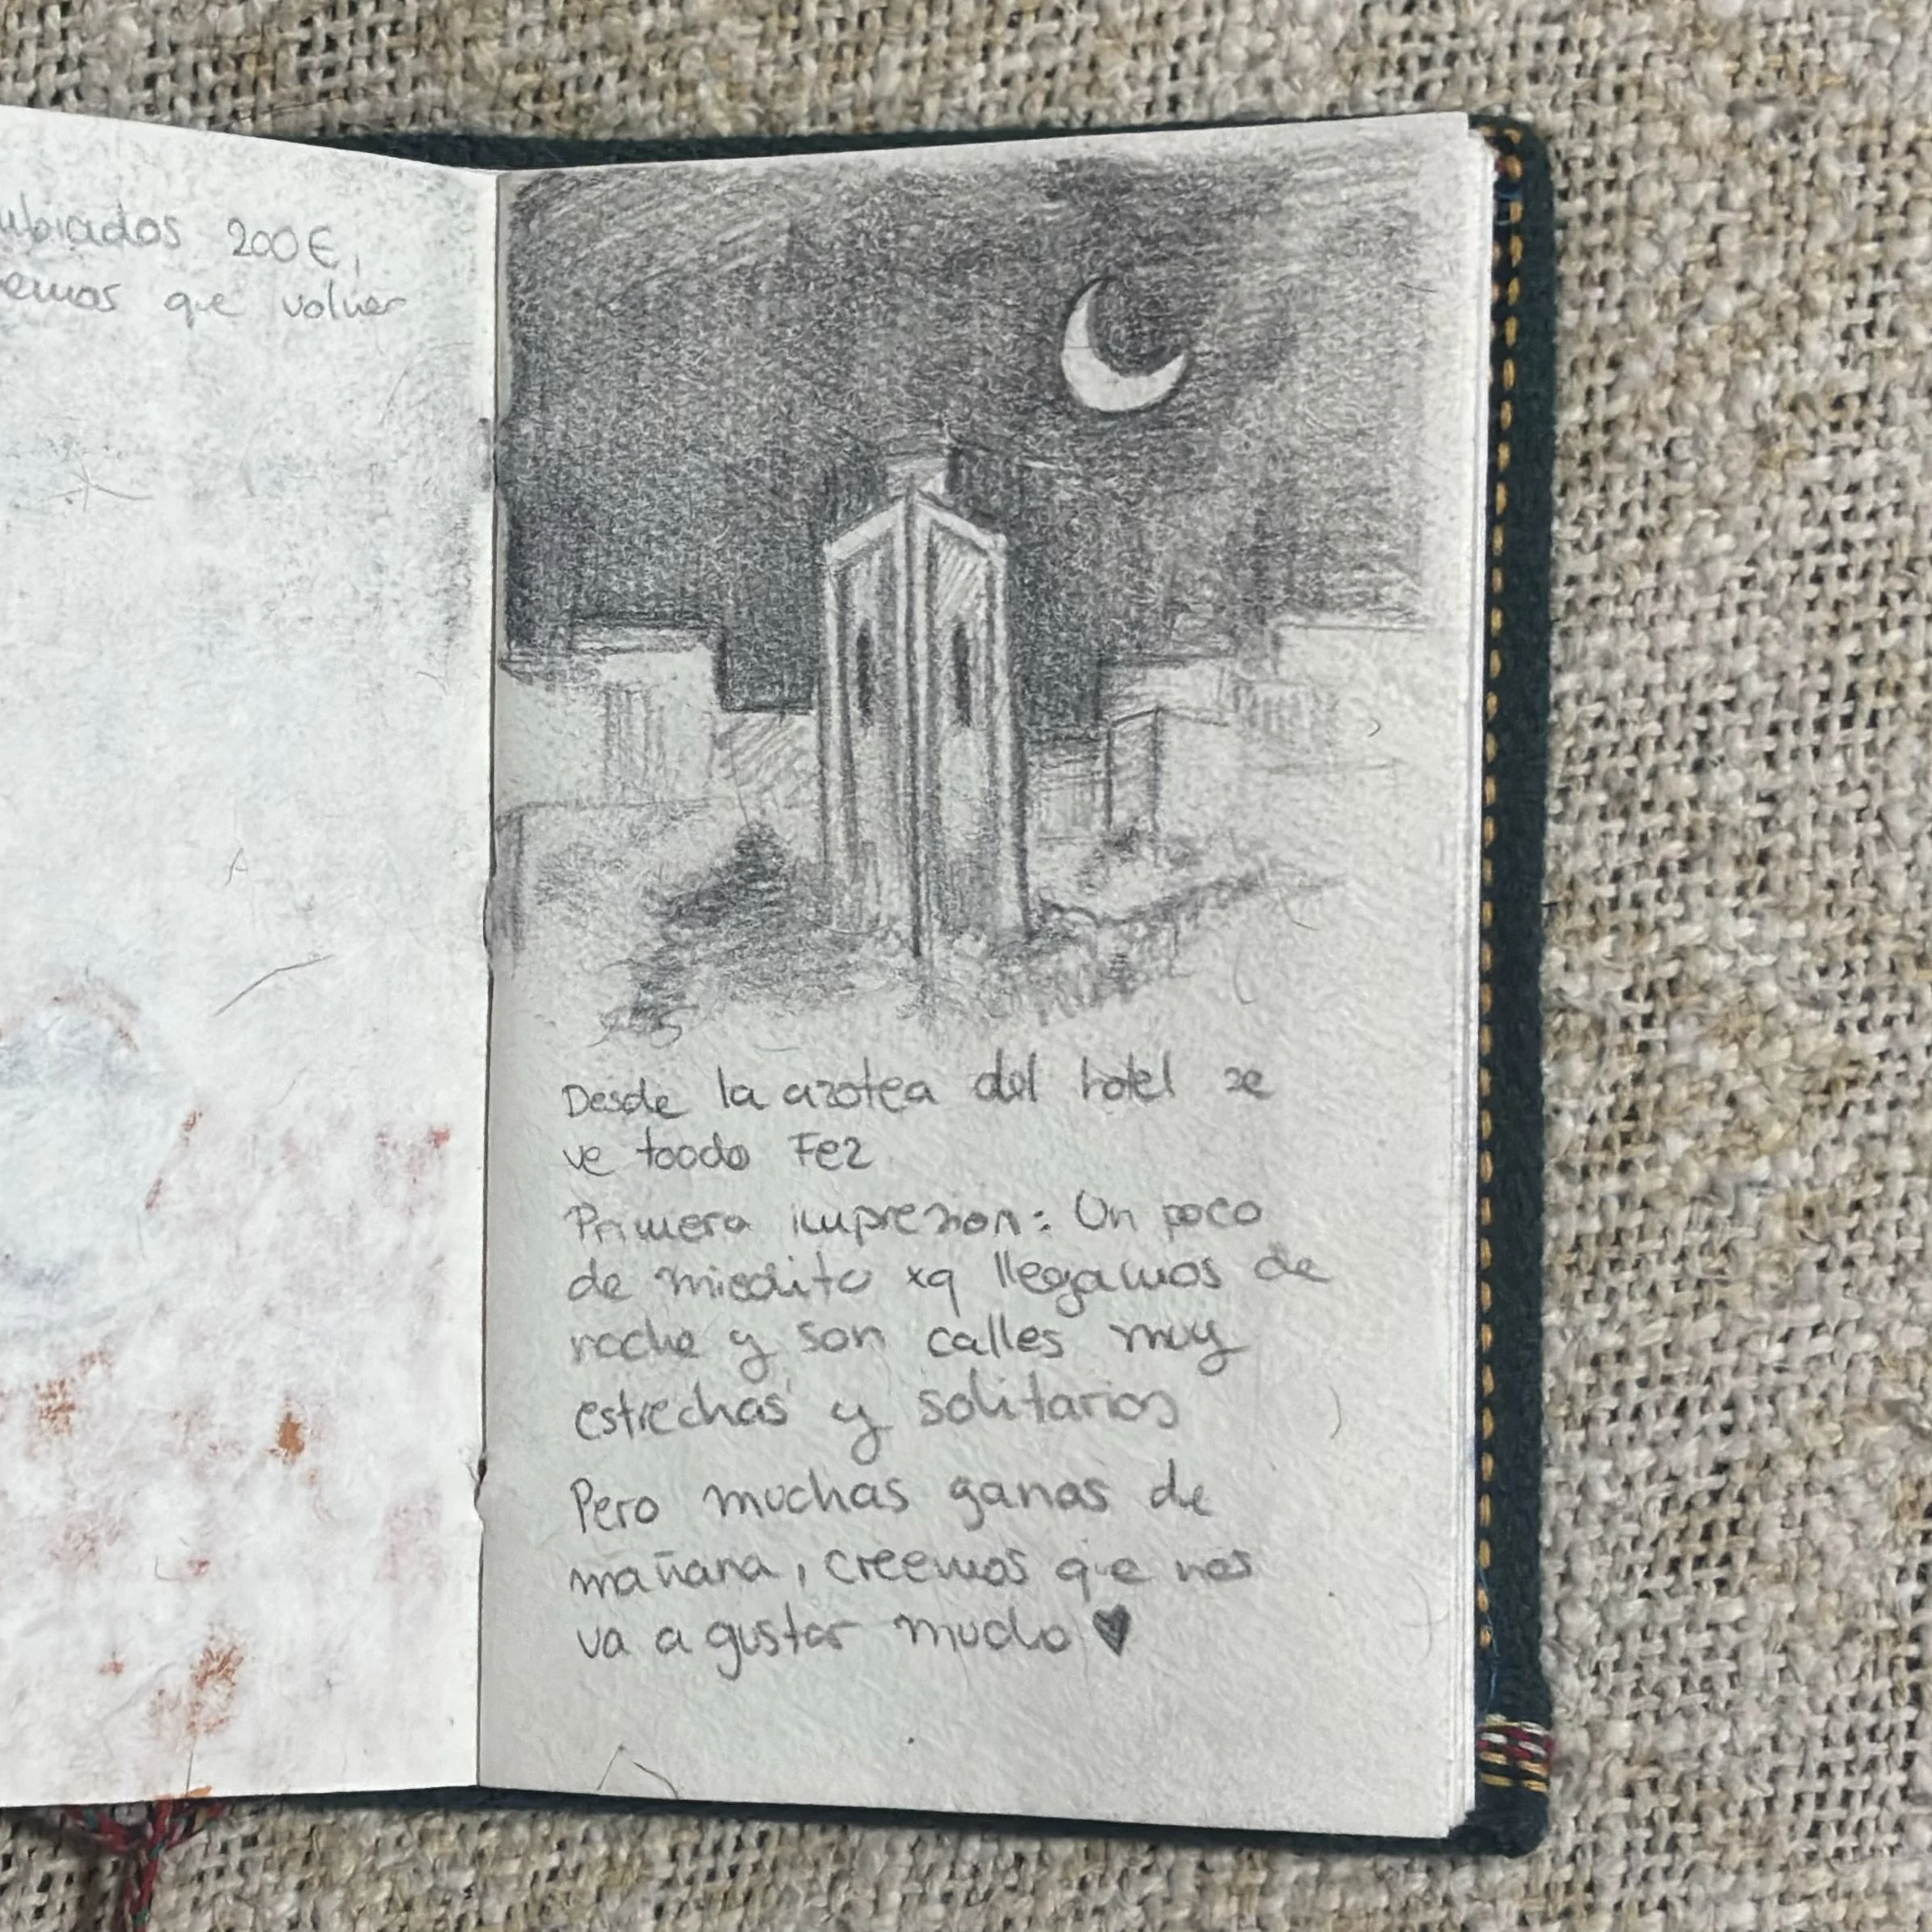 ubiados 200€,
emos que volver
Desde la azotea del hotel se
ve toodo Fez
Primera impresion: Un poco
de miedito xq llegamos de
noche y son calles muy
estrechas y solitarias
Pero muchas ganas de
mañana, creemos que nos
va a gustar mucho ♥